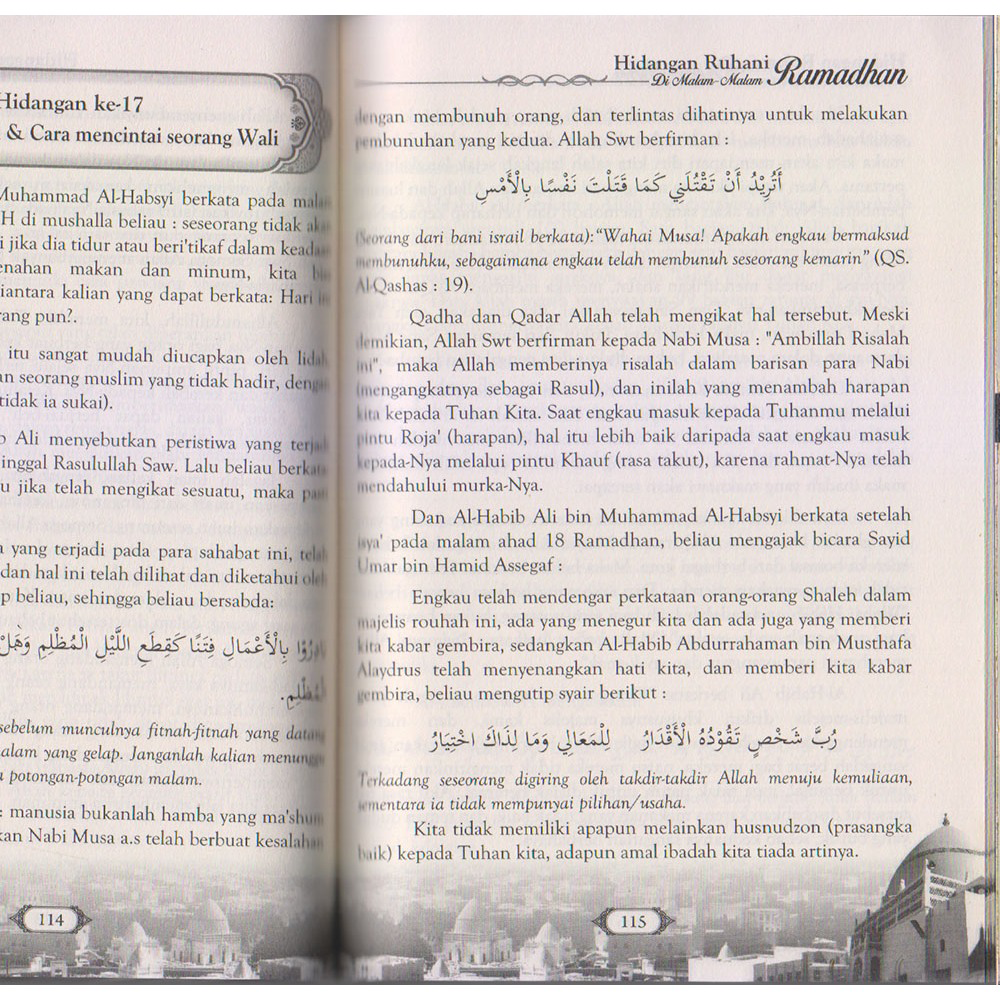 Hidangan ke-17
& Cara mencintai seorang Wali
Muhammad Al-Habsyi berkata pada malam
H di mushalla beliau : seseorang tidak akan
i jika dia tidur atau beri'tikaf dalam keadaan
enahan makan dan minum, kita
iantara kalian yang dapat berkata: Hari ini
rang pun?.
itu sangat mudah diucapkan oleh lidah
an seorang muslim yang tidak hadir, dengan
tidak ia sukai).
b Ali menyebutkan peristiwa yang terjadi
inggal Rasulullah Saw. Lalu beliau berkata
u jika telah mengikat sesuatu, maka pasti
a yang terjadi pada para sahabat ini, telah
dan hal ini telah dilihat dan diketahui oleh
p beliau, sehingga beliau bersabda:
بِالْأَعْمَالِ فِتَنًا كَقِطَعِ اللَّيْلِ الْمُظْلِمِ وَهَلْ
الْمُظْلِمِ.
sebelum munculnya fitnah-fitnah yang datang
malam yang gelap. Janganlah kalian menunggu
a potongan-potongan malam.
: manusia bukanlah hamba yang ma'shum
kan Nabi Musa a.s telah berbuat kesalahan
114
Hidangan Ruhani
Di Malam-Malam Ramadhan
dengan membunuh orang, dan terlintas dihatinya untuk melakukan
pembunuhan yang kedua. Allah Swt berfirman :
أَتُرِيْدُ أَنْ تَقْتُلَنِي كَمَا قَتَلْتَ نَفْسًا بِالْأَمْسِ
(Seorang dari bani israil berkata):“Wahai Musa! Apakah engkau bermaksud
membunuhku, sebagaimana engkau telah membunuh seseorang kemarin” (QS.
Al-Qashas : 19).
Qadha dan Qadar Allah telah mengikat hal tersebut. Meski
demikian, Allah Swt berfirman kepada Nabi Musa : "Ambillah Risalah
ini", maka Allah memberinya risalah dalam barisan para Nabi
(mengangkatnya sebagai Rasul), dan inilah yang menambah harapan
kita kepada Tuhan Kita. Saat engkau masuk kepada Tuhanmu melalui
pintu Roja' (harapan), hal itu lebih baik daripada saat engkau masuk
kepada-Nya melalui pintu Khauf (rasa takut), karena rahmat-Nya telah
mendahului murka-Nya.
Dan Al-Habib Ali bin Muhammad Al-Habsyi berkata setelah
isya' pada malam ahad 18 Ramadhan, beliau mengajak bicara Sayid
Umar bin Hamid Assegaf :
Engkau telah mendengar perkataan orang-orang Shaleh dalam
majelis rouhah ini, ada yang menegur kita dan ada juga yang memberi
kita kabar gembira, sedangkan Al-Habib Abdurrahaman bin Musthafa
Alaydrus telah menyenangkan hati kita, dan memberi kita kabar
gembira, beliau mengutip syair berikut :
رُبَّ شَخْصٍ تَقُوْدُهُ الْأَقْدَارُ لِلْمَعَالِي وَمَا لِذَاكَ اخْتِيَارُ
Terkadang seseorang digiring oleh takdir-takdir Allah menuju kemuliaan,
sementara ia tidak mempunyai pilihan/usaha.
Kita tidak memiliki apapun melainkan husnudzon (prasangka
baik) kepada Tuhan kita, adapun amal ibadah kita tiada artinya.
115